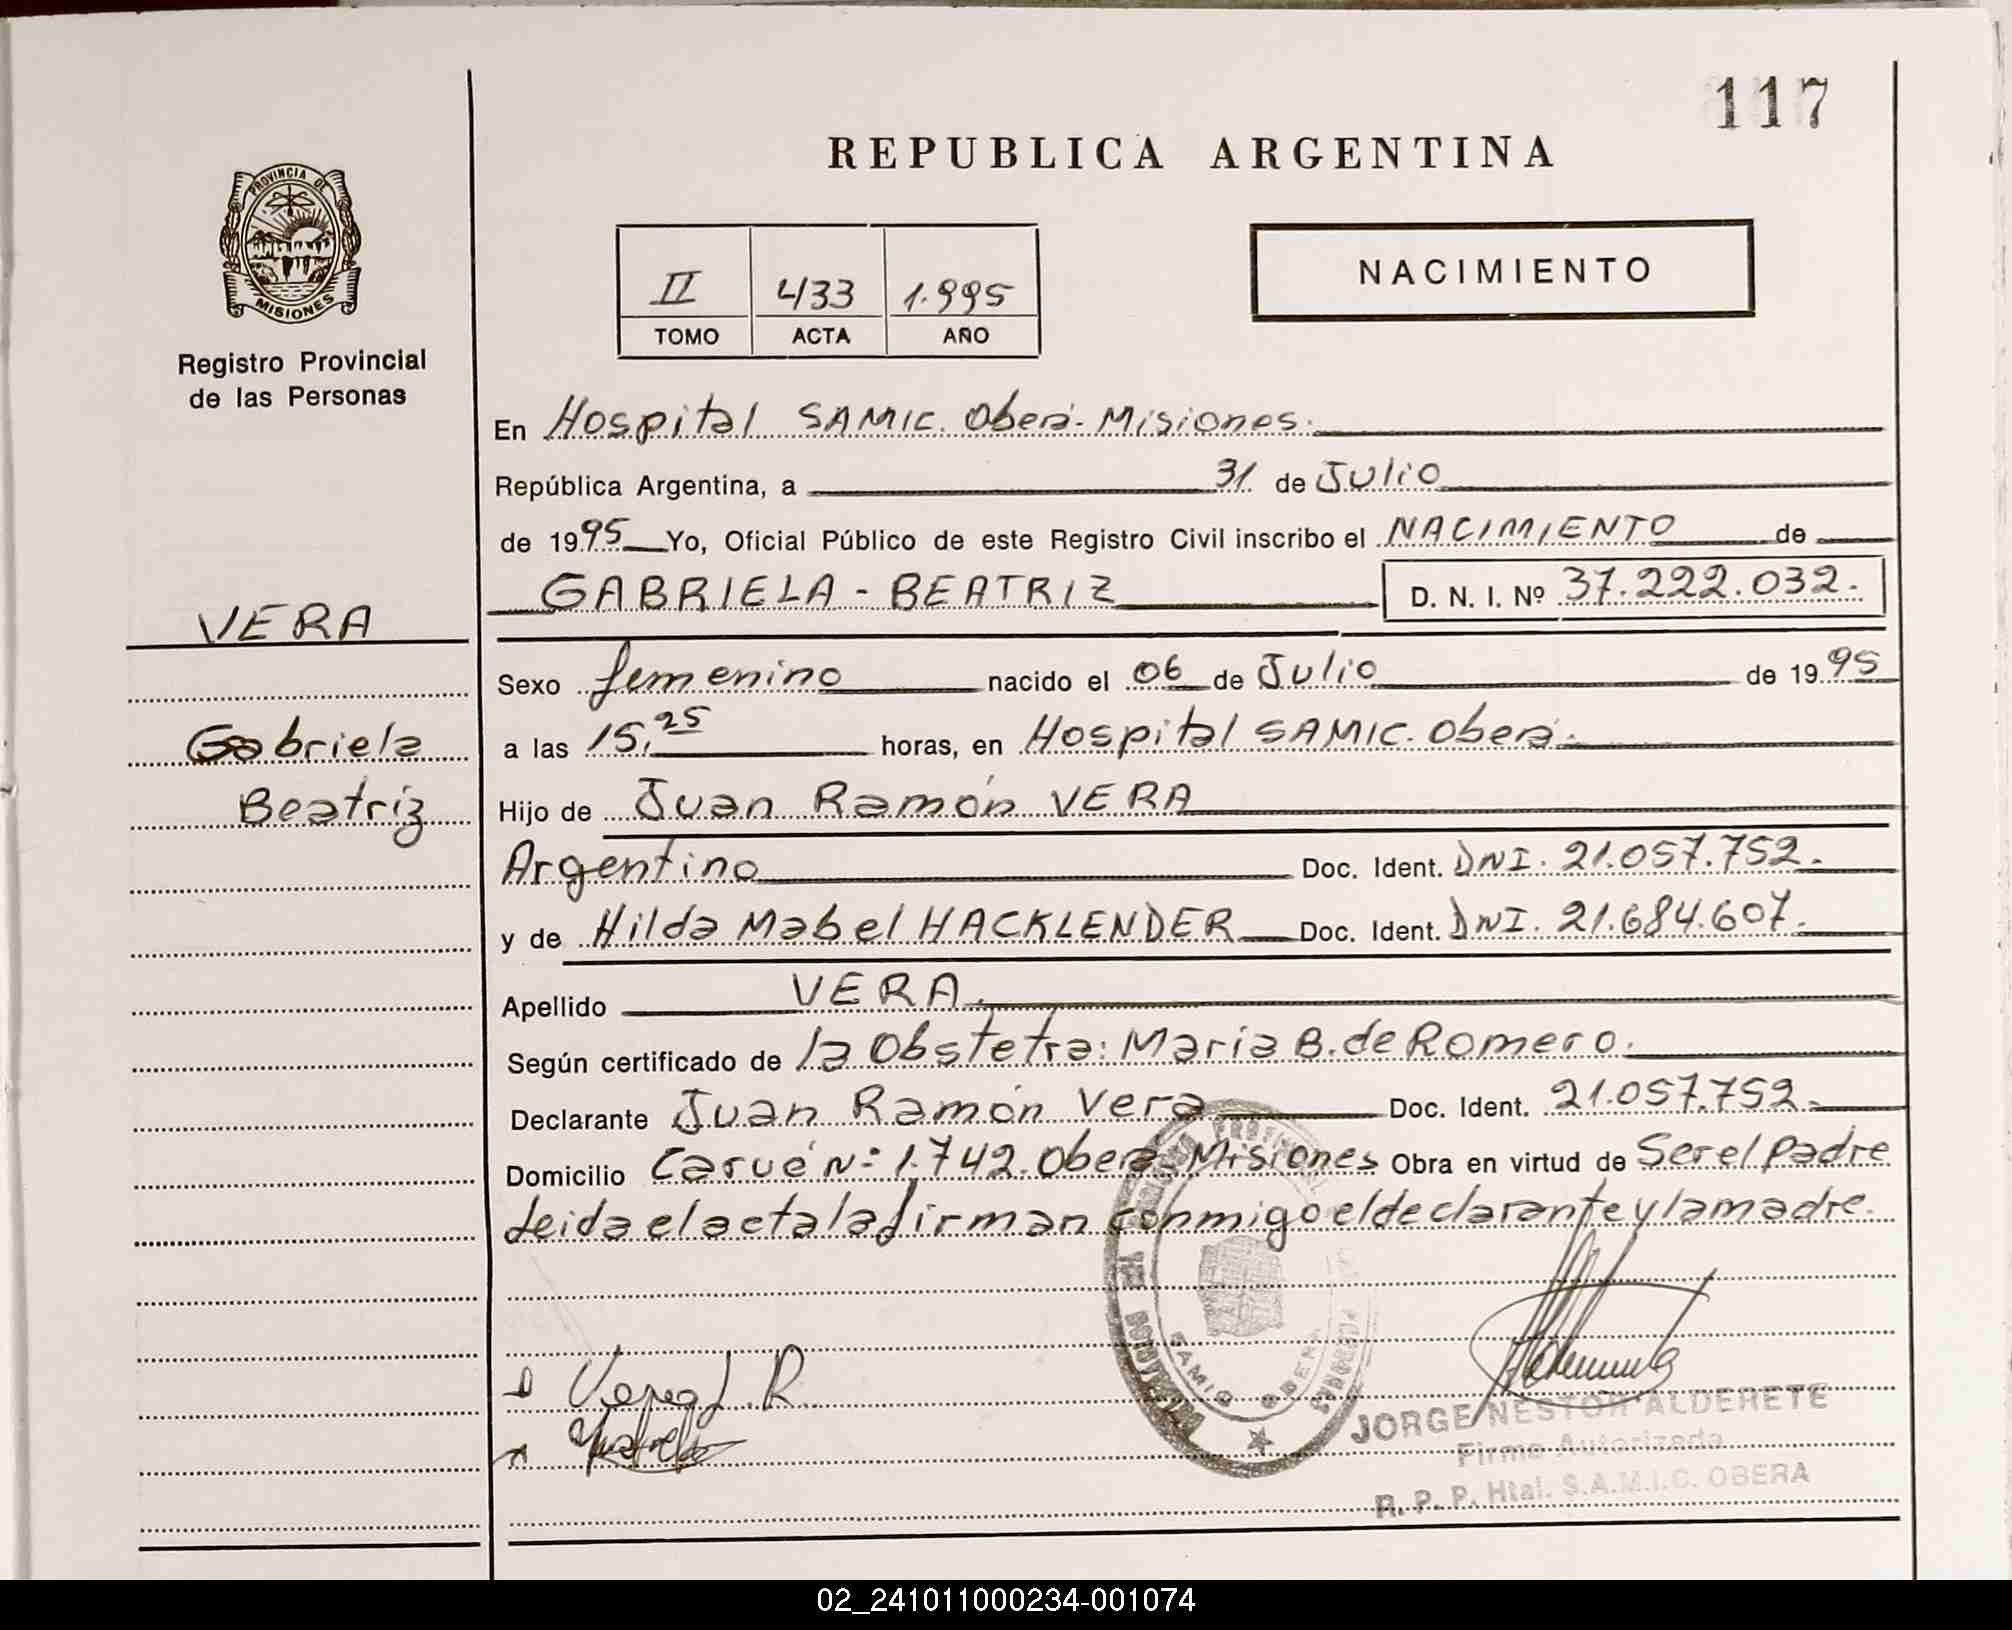 117
REPUBLICA ARGENTINA
PROVINCIA DE
MISIONES
Registro Provincial
de las Personas
II 433 1.995
TOMO ACTA AÑO
NACIMIENTO
En Hospital SAMIC. Oberá. Misiones.
República Argentina, a 31 de Julio
de 1995 Yo, Oficial Público de este Registro Civil inscribo el NACIMIENTO de
GABRIELA - BEATRIZ D. N. I. Nº 37.222.032.
VERA
Sexo femenino nacido el 06 de Julio de 1995
Gabriela
a las 15,25 horas, en Hospital SAMIC. Oberá.
Beatriz
Hijo de Juan Ramón VERA
Argentino Doc. Ident. DNI. 21.057.752.
y de Hilda Mabel HACKLENDER Doc. Ident. DNI. 21.684.607.
Apellido VERA.
Según certificado de la Obstetra: María B. de Romero.
Declarante Juan Ramón Vera Doc. Ident. 21.057.752.
Domicilio Carué Nº 1.742. Oberá. Misiones Obra en virtud de Ser el Padre
Leida el acta la firman conmigo el declarante y la madre.
Vera J. R.
SAMIC OBERA
JORGE NESTOR ALDERETE
Firma Autorizada
R. P. P. Htal. S.A.M.I.C. OBERA
02_241011000234-001074